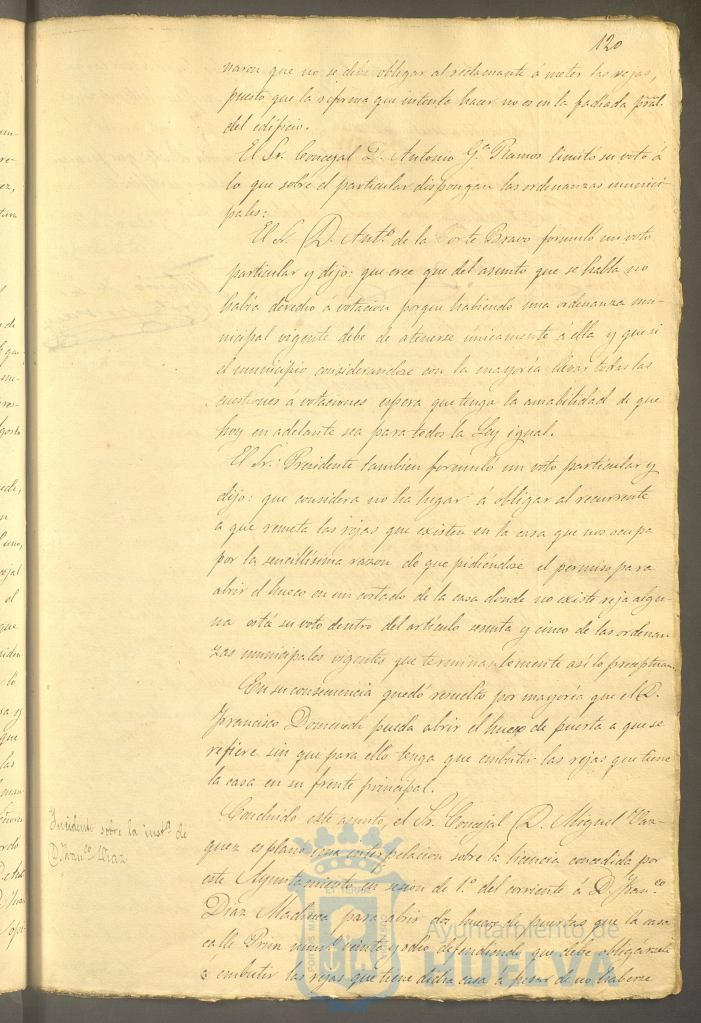 120
naron que no se debe obligar al reclamante á meter las rejas,
puesto que la reforma que intenta hacer no es en la fachada pral.
del edificio.
El Sr. Concejal D. Antonio G.ª Ramos limitó su voto á
lo que sobre el particular dispongan las ordenanzas munici-
pales:
El Sr. D. Ant.º de la Corte Bravo formuló un voto
particular y dijo: que cree que del asunto que se habla no
había derecho á votación porque habiendo una ordenanza mu-
nicipal vigente debe de atenerse únicamente á ella y que si
el municipio considerandose con la mayoría llevar todas las
cuestiones a votaciones espera que tenga la amabilidad de que
hoy en adelante sea para todos la Ley igual.
El Sr. Presidente tambien formuló un voto particular y
dijo: que considera no ha lugar á obligar al recurrente
a que remeta las rejas que existen en la casa que nos ocupa
por la sencillísima razón de que pidiéndose el permiso para
abrir el hueco en un costado de la casa donde no existe reja algu-
na está su voto dentro del artículo sesenta y cinco de las ordenan-
zas municipales vigentes que terminantemente así lo preceptuan.
En su consecuencia quedó resuelto por mayoría que el D.
Francisco Domenech pueda abrir el hueco de puerta a que se
refiere sin que para ello tenga que embutir las rejas que tiene
la casa en su frente principal.
Incidente sobre la inst.ª de
D. Fran.co Diaz
Concluido este asunto, el Sr. Concejal D. Miguel Vaz-
quez esplanó una interpelacion sobre la licencia concedida por
este Ayuntamiento en sesion de 1.º del corriente á D. Fran.co
Diaz para abrir dos huecos de puertas que la casa
calle Prim num.º veinte y ocho defendiendo que debe obligársele
á embutir las rejas que tiene dicha casa a pesar de no haberse
Ayuntamiento de
HUELVA